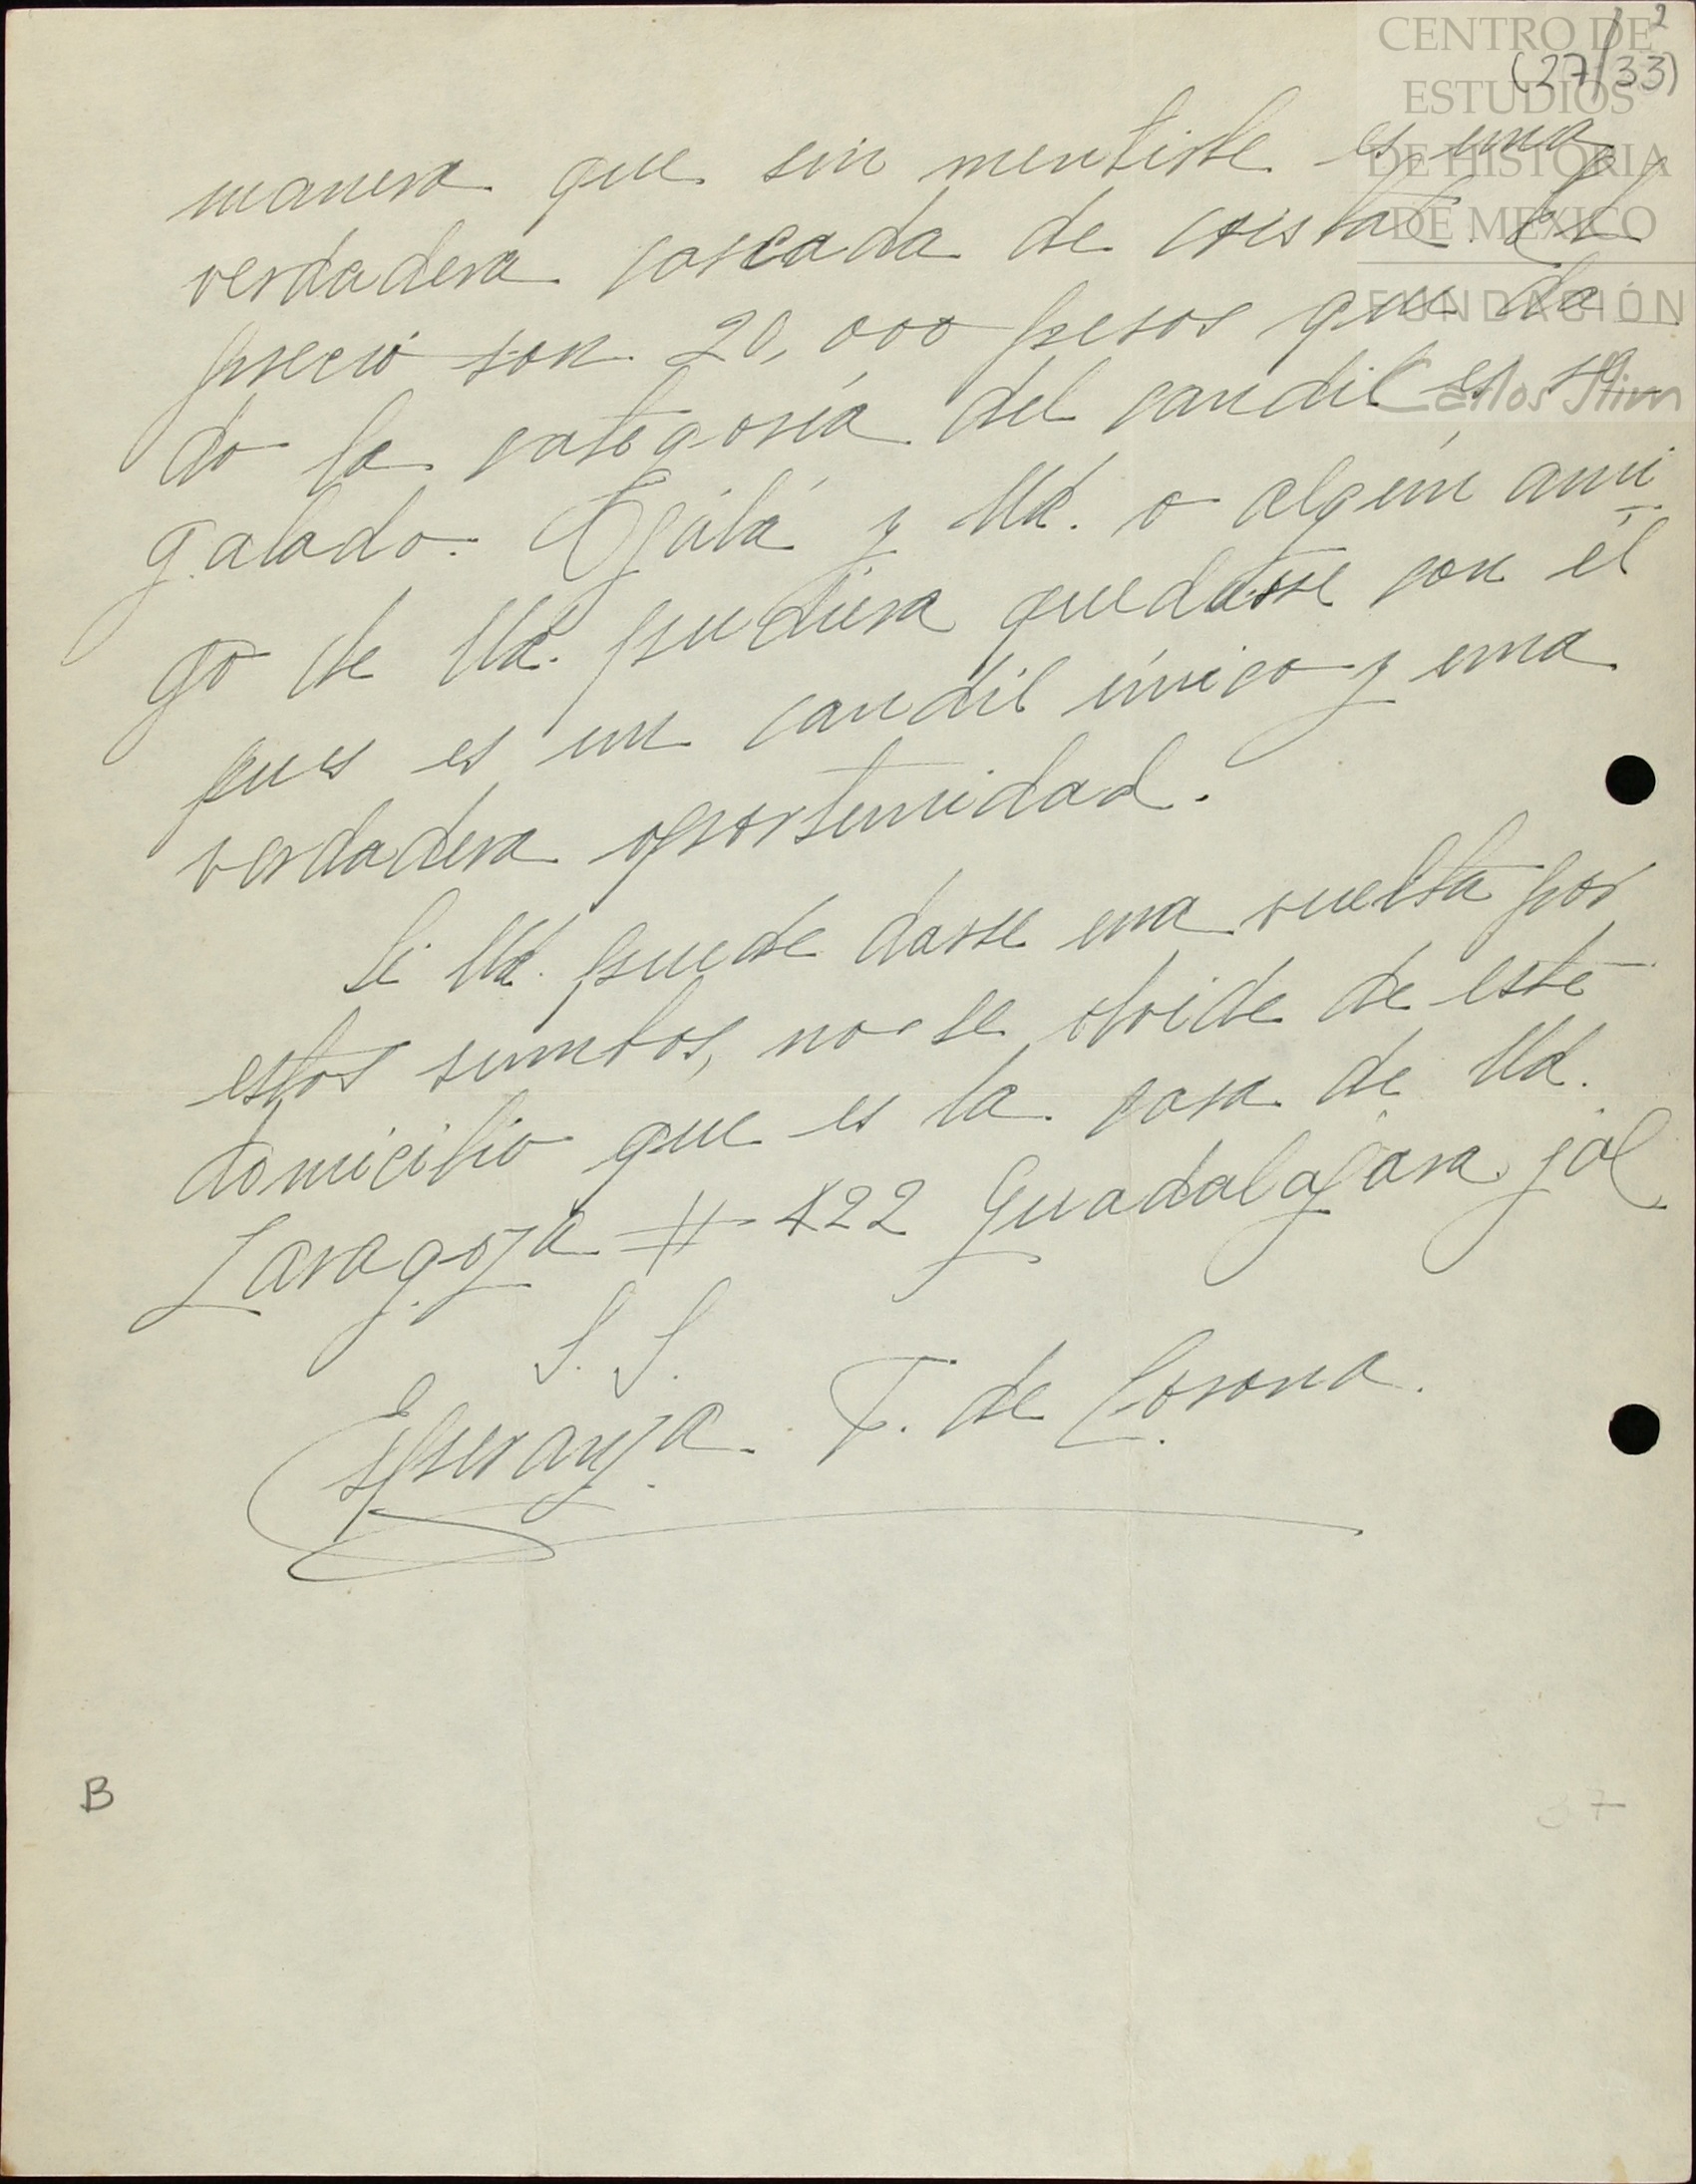 2
(27/33)
CENTRO DE
ESTUDIOS
DE HISTORIA
DE MEXICO
FUNDACIÓN
Carlos Slim
manera que sin mentirle es una
verdadera cascada de cristal. El
precio son 20,000 pesos que da
do la categoría del candil es re
galado. Ojála y Ud. o algún ami
go de Ud. pudiera quedarse con él
pues es un candil único y una
verdadera oportunidad.
Si Ud. puede darse una vuelta por
estos rumbos, no se olvide de este
domicilio que es la casa de Ud.
Zaragoza # 422 Guadalajara jal
S. S.
Esperanza T. de Corona.
B
7